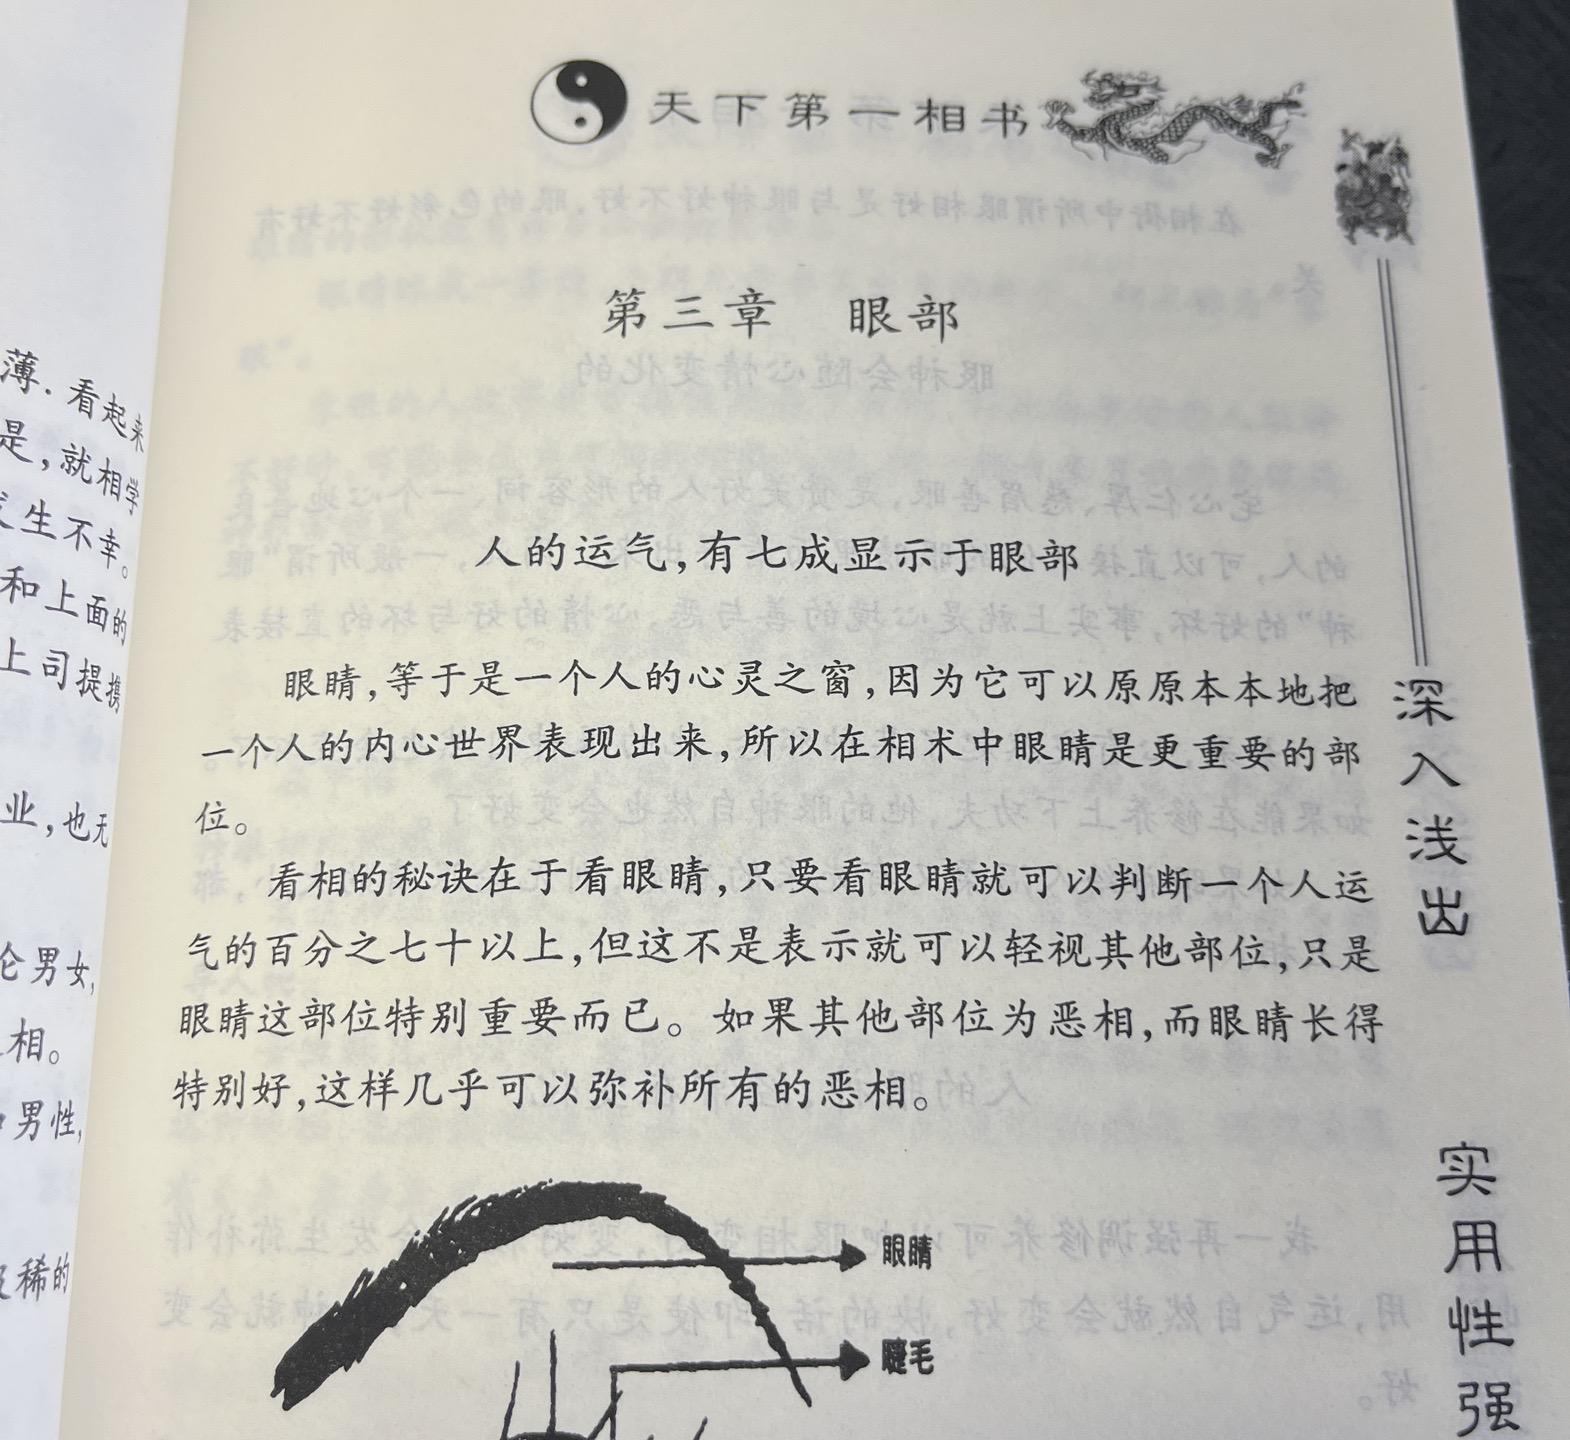 天下第一相书
第三章 眼部
人的运气,有七成显示于眼部
眼睛,等于是一个人的心灵之窗,因为它可以原原本本地把
一个人的内心世界表现出来,所以在相术中眼睛是更重要的部
位。
看相的秘诀在于看眼睛,只要看眼睛就可以判断一个人运
气的百分之七十以上,但这不是表示就可以轻视其他部位,只是
眼睛这部位特别重要而已。如果其他部位为恶相,而眼睛长得
特别好,这样几乎可以弥补所有的恶相。
眼睛
睫毛
深入浅出
实用性强
薄.看起来
是,就相学
生不幸。
和上面的
上司提携
业,也无
男女,
相。
男性,
稀的